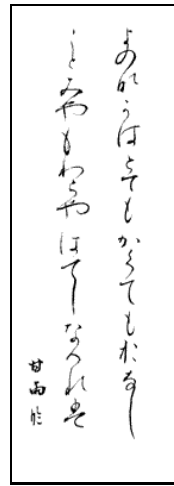 よの那可はとてもかくてもおなし
ことみやもわらやはてしなけれは
甘雨臨